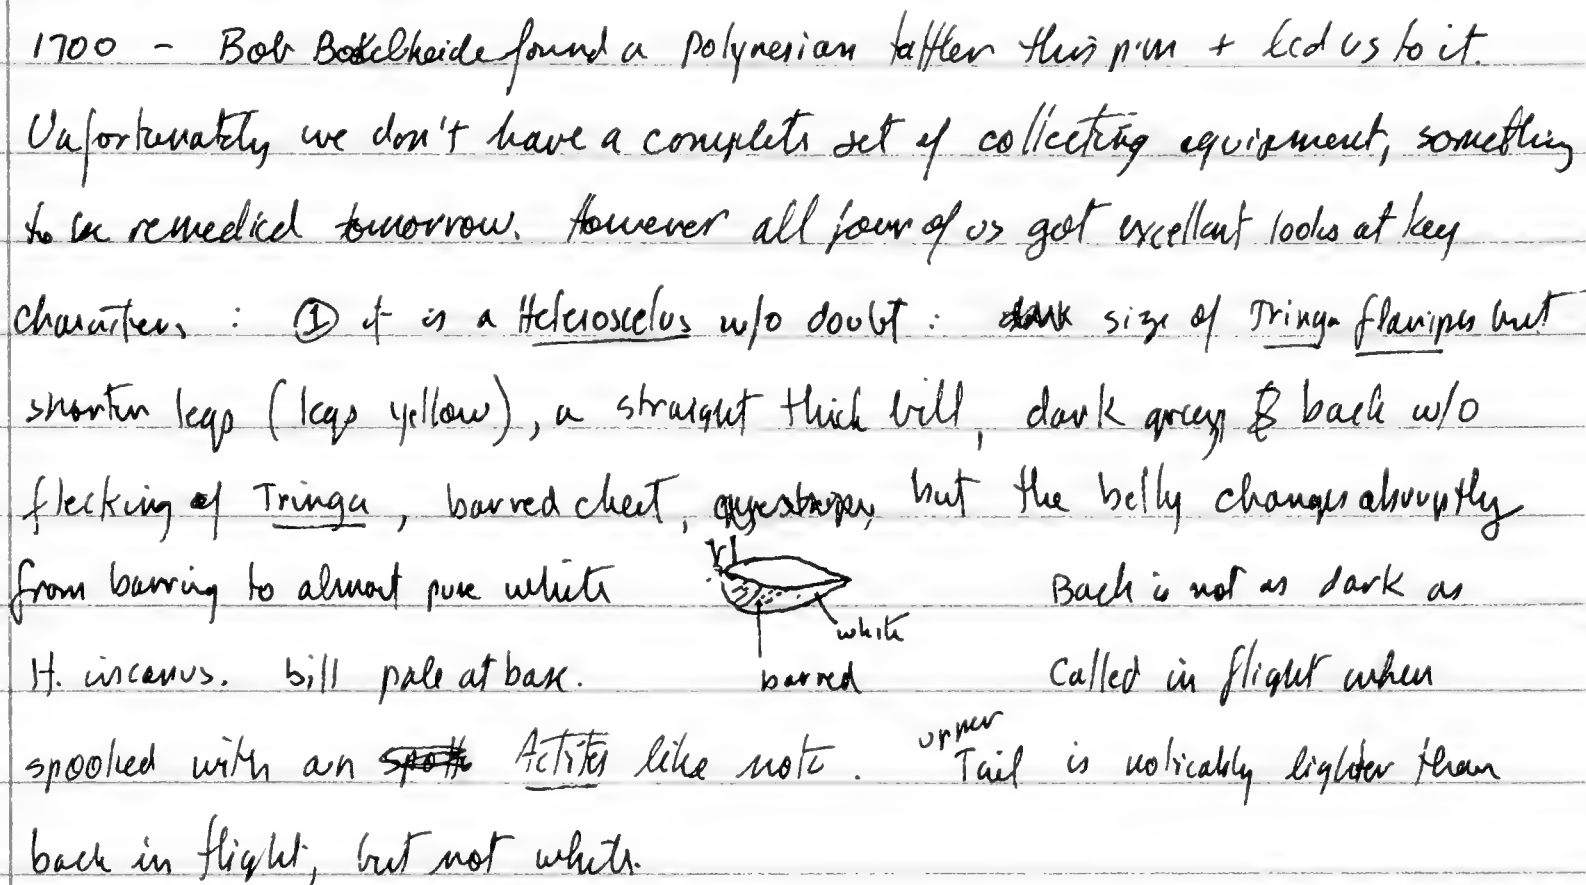 1700 - Bob Boekelheide found a Polynesian tattler this p.m + led us to it.
Unfortunately we don't have a complete set of collecting equipment, something
to be remedied tomorrow. However all four of us got excellent looks at key
characters : ① it is a Heteroscelus w/o doubt : size of Tringa flavipes but
shorter legs (legs yellow), a straight thick bill, dark grey back w/o
flecking of Tringa, barred chest, but the belly changes abruptly
from barring to almost pure white Back is not as dark as
white
H. incanus. bill pale at base. barred Called in flight when
spooked with an Actitis like note. upper Tail is noticably lighter than
back in flight, but not white.